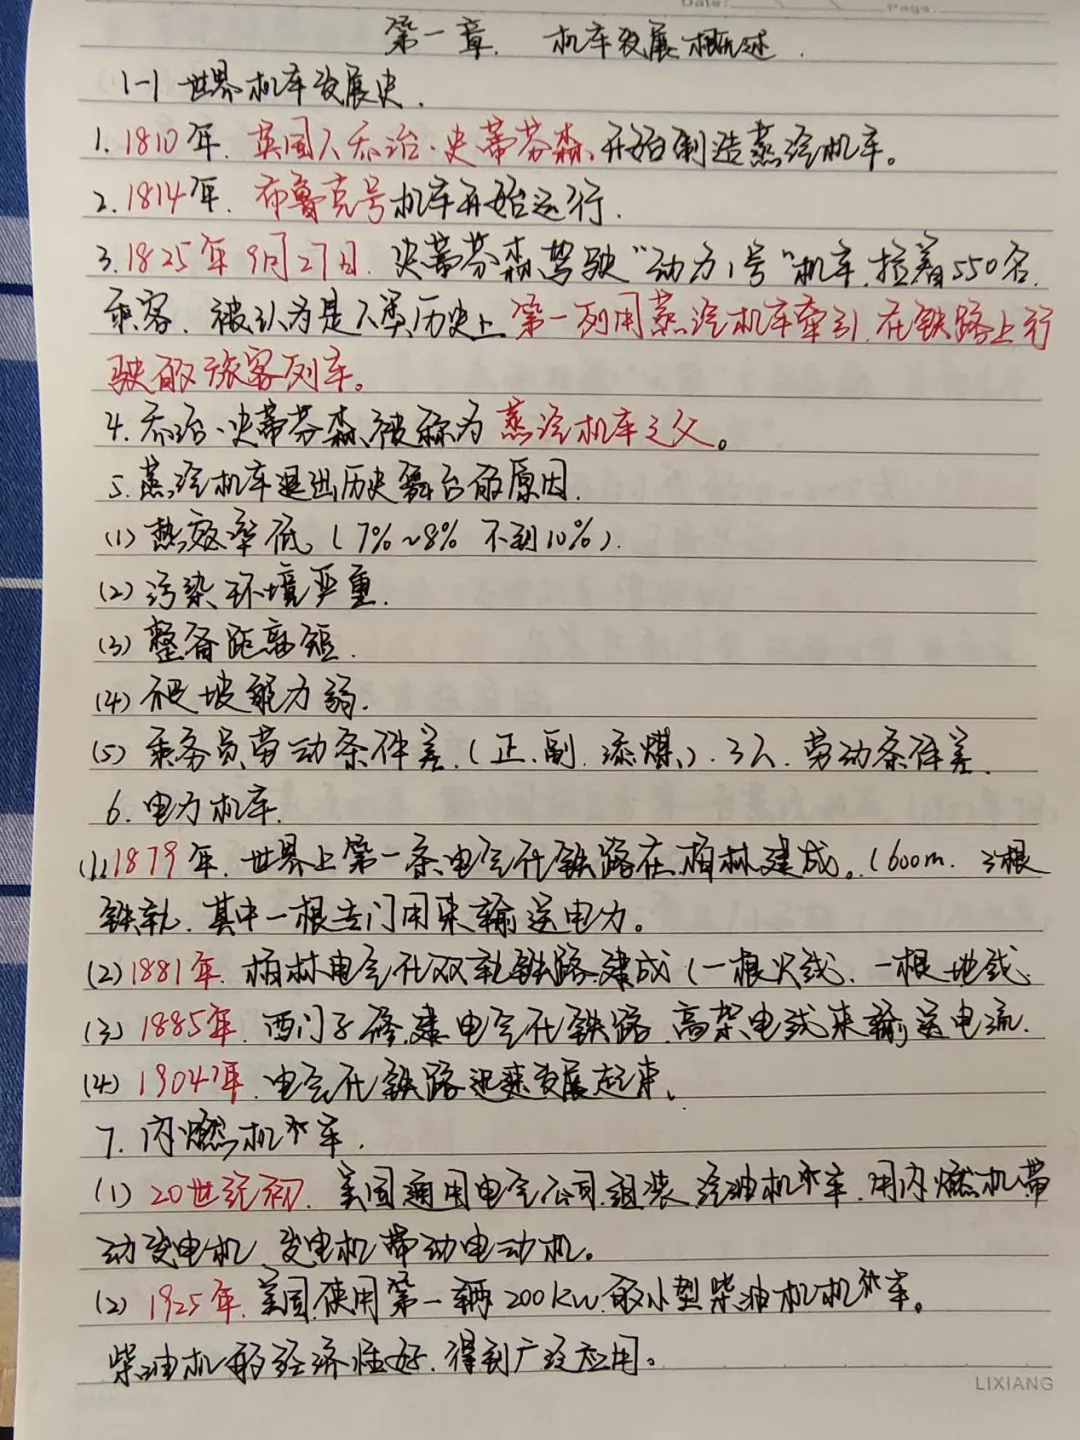 Date: / / Page:
第一章. 机车发展概述.
1-1 世界机车发展史.
1. 1810年. 英国人乔治·史蒂芬森, 开始制造蒸汽机车。
2. 1814年. 布鲁克号机车开始运行.
3. 1825年9月27日. 史蒂芬森驾驶"动力1号"机车, 拉着550名.
乘客. 被认为是人类历史上第一列用蒸汽机车牵引. 在铁路上行
驶的旅客列车。
4. 乔治·史蒂芬森被称为蒸汽机车之父。
5. 蒸汽机车退出历史舞台的原因.
(1) 热效率低. (7%~8% 不到10%).
(2) 污染环境严重.
(3) 整备距离短.
(4) 爬坡能力弱.
(5) 乘务员劳动条件差. (正. 副. 添煤). 3人. 劳动条件差.
6. 电力机车.
(1) 1879年. 世界上第一条电气化铁路在柏林建成。(600m. 3根
铁轨, 其中一根专门用来输送电力。
(2) 1881年. 柏林电气化双轨铁路建成 (一根火线. 一根地线.
(3) 1885年. 西门子修建电气化铁路. 高架电线来输送电流.
(4) 1904年. 电气化铁路迅速发展起来.
7. 内燃机车.
(1) 20世纪初. 美国通用电气公司组装汽油机车. 用内燃机带
动发电机, 发电机带动电动机。
(2) 1925年. 美国使用第一辆200kw的小型柴油机机车。
柴油机的经济性好. 得到广泛应用。
LIXIANG